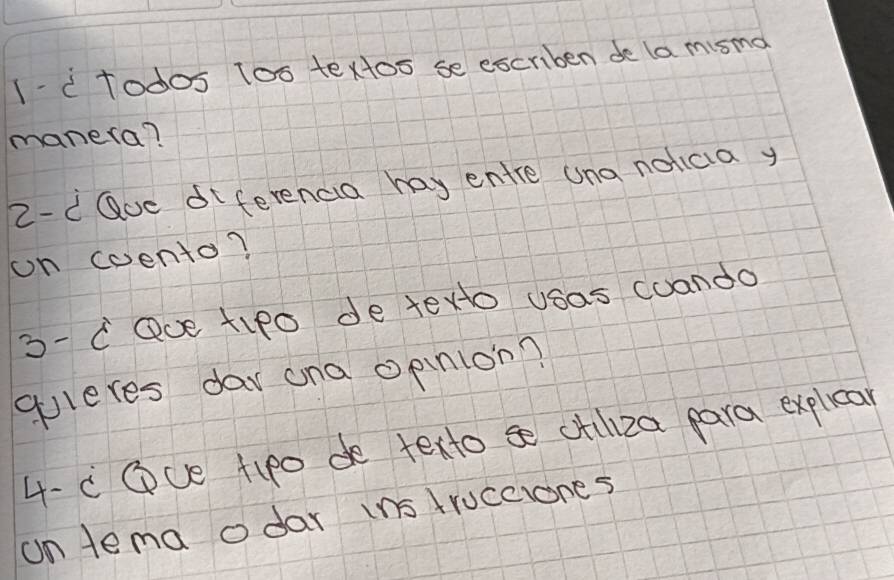 1-¿Todos los textos se escriben de la misma
manera?
2-¿Que diferencia hay entre una noticia y
un cuento?
3-¿Que tipo de texto usas cuando
quieres dar una opinión?
4-¿Que tipo de texto se utiliza para explicar
un tema o dar instrucciones